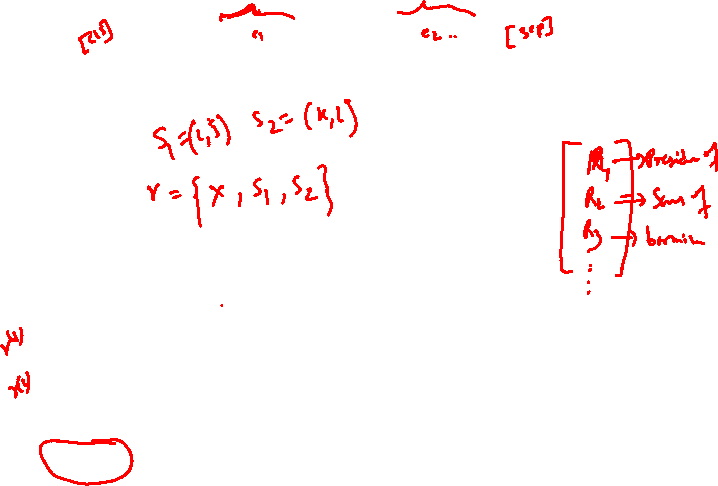 [CLS] e₁ e₂ .. [SEP]
S₁=(i,j) S₂=(k,l)
r={x, S₁, S₂}
R₁ → President of
R₂ → Son of
R₃ → born in
⋮